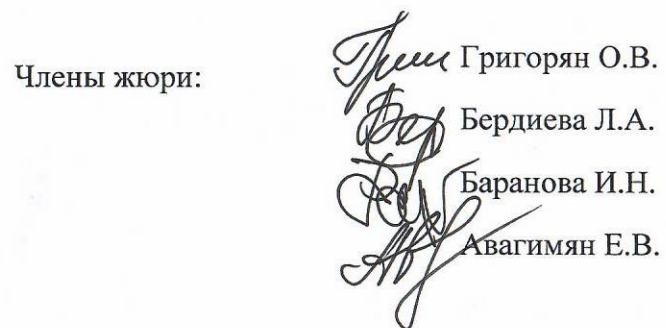 Члены жюри:
Григорян О.В.
Бердиева Л.А.
Баранова И.Н.
Авагимян Е.В.